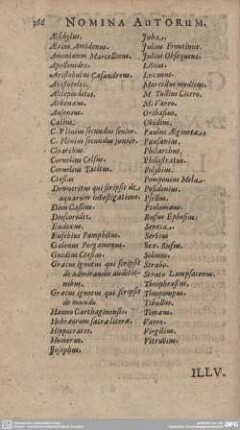 Nomina Autorum.
Æschylus.
Ætius Amidenus.
Ammianus Marcellinus.
Apollonides.
Aristobulus Casandreus.
Aristoteles.
Asclepiodotus.
Athenæus.
Ausonius.
Cælius.
C. Plinius secundus senior.
C. Plinius secundus junior.
Clearchus.
Cornelius Celsus.
Cornelius Tacitus.
Ctesias
Democritus qui scripsit de
aquarum investigatione.
Dion Cassius.
Dioscorides.
Eudoxus.
Eusebius Pamphilus.
Galenus Pergamenus.
Gnidius Ctesias.
Græcus ignotus qui scripsit
de admirandis auditio-
nibus.
Græcus ignotus qui scripsit
de mundo.
Hanno Carthaginensis.
Hebræorum sacra literæ.
Hippocrates.
Homerus.
Josephus.
Juba.
Julius Frontinus.
Julius Obsequens.
Livius.
Lucanus.
Marcellus medicus.
M. Tullius Cicero.
M. Varro.
Oribasius.
Ovidius.
Paulus Ægineta.
Pausanias.
Philarchus.
Philostratus.
Polybius.
Pomponius Mela.
Posidonius.
Psellus.
Ptolemæus.
Rufus Ephesius.
Seneca.
Servius
Sex. Rufus.
Solinus.
Strabo.
Strato Lampsacenus.
Theophrastus.
Theopompus.
Tibullus.
Timæus.
Varro.
Virgilius.
Vitruvius.
ILLV.